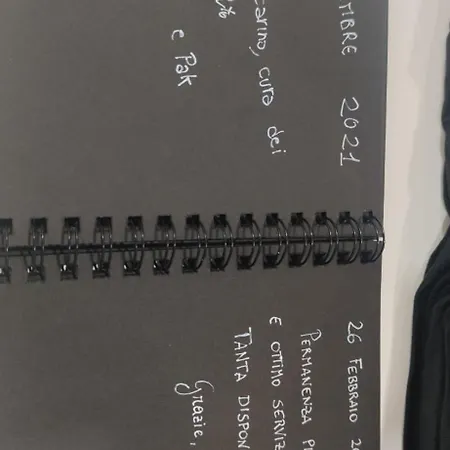 MBRE 2021
carino, cura dei
e Pak
26 FEBBRAIO 20
PERMANENZA P
E OTTIMO SERVIZ
TANTA DISPON
Grazie,